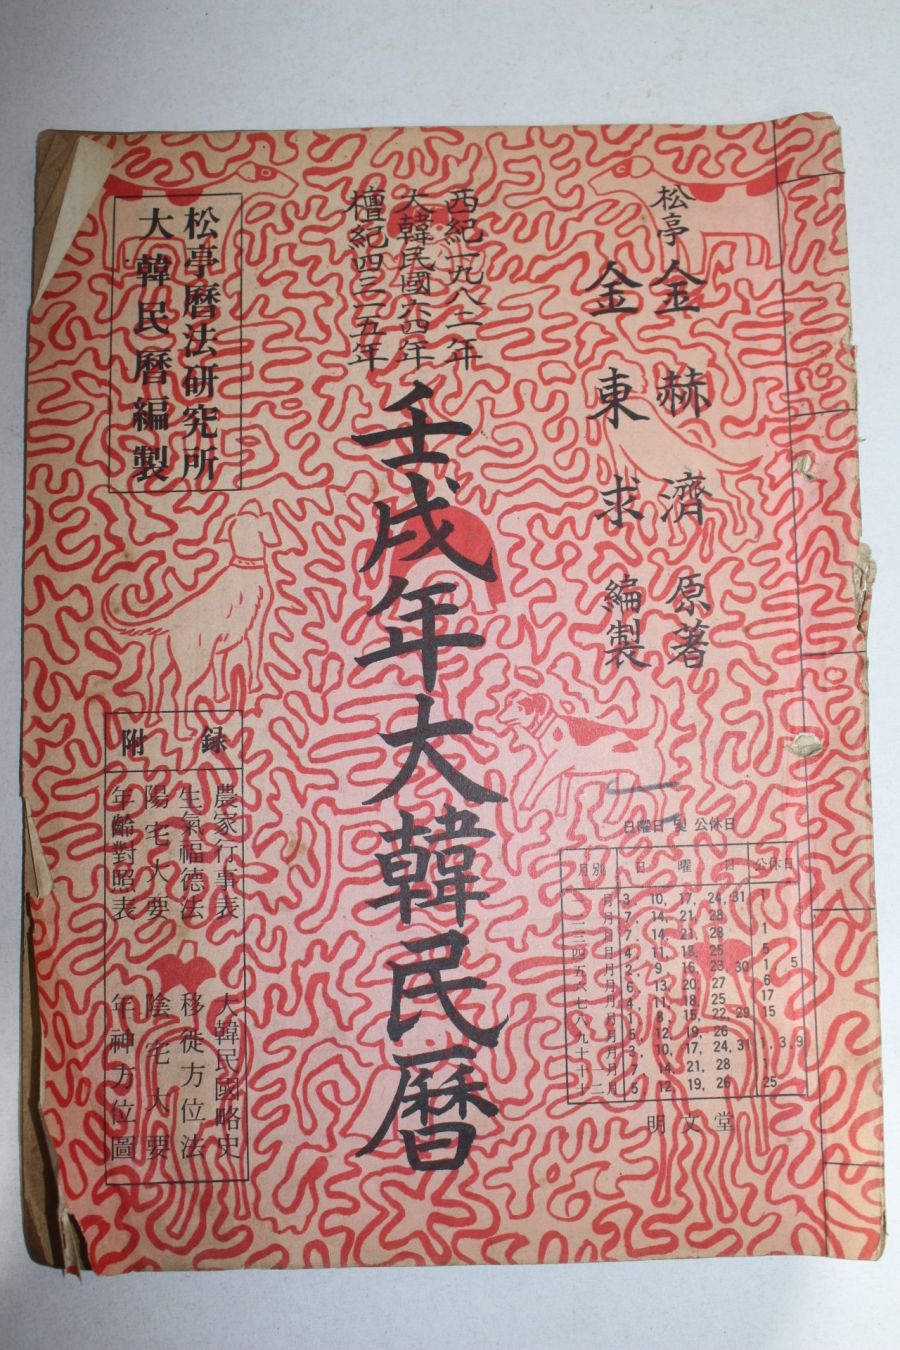 松亭 金赫濟 原著
金東求 編製
西紀一九八二年
大韓民國六四年
檀紀四三一五年
壬戌年大韓民曆
松亭曆法研究所
大韓民曆編製
附錄
農家行事表 大韓民國略史
生氣福德法 移徙方位法
陽宅大要 陰宅大要
年齡對照表 年神方位圖
日曜日 및 公休日
月別 日曜日 公休日
一月 3, 10, 17, 24, 31 1
二月 7, 14, 21, 28
三月 7, 14, 21, 28 1
四月 4, 11, 18, 25 5
五月 2, 9, 16, 23, 30 1 5
六月 6, 13, 20, 27 6
七月 4, 11, 18, 25 17
八月 1, 8, 15, 22, 29 15
九月 5, 12, 19, 26
十月 3, 10, 17, 24, 31 1, 3, 9
十一月 7, 14, 21, 28
十二月 5, 12, 19, 26 25
明文堂